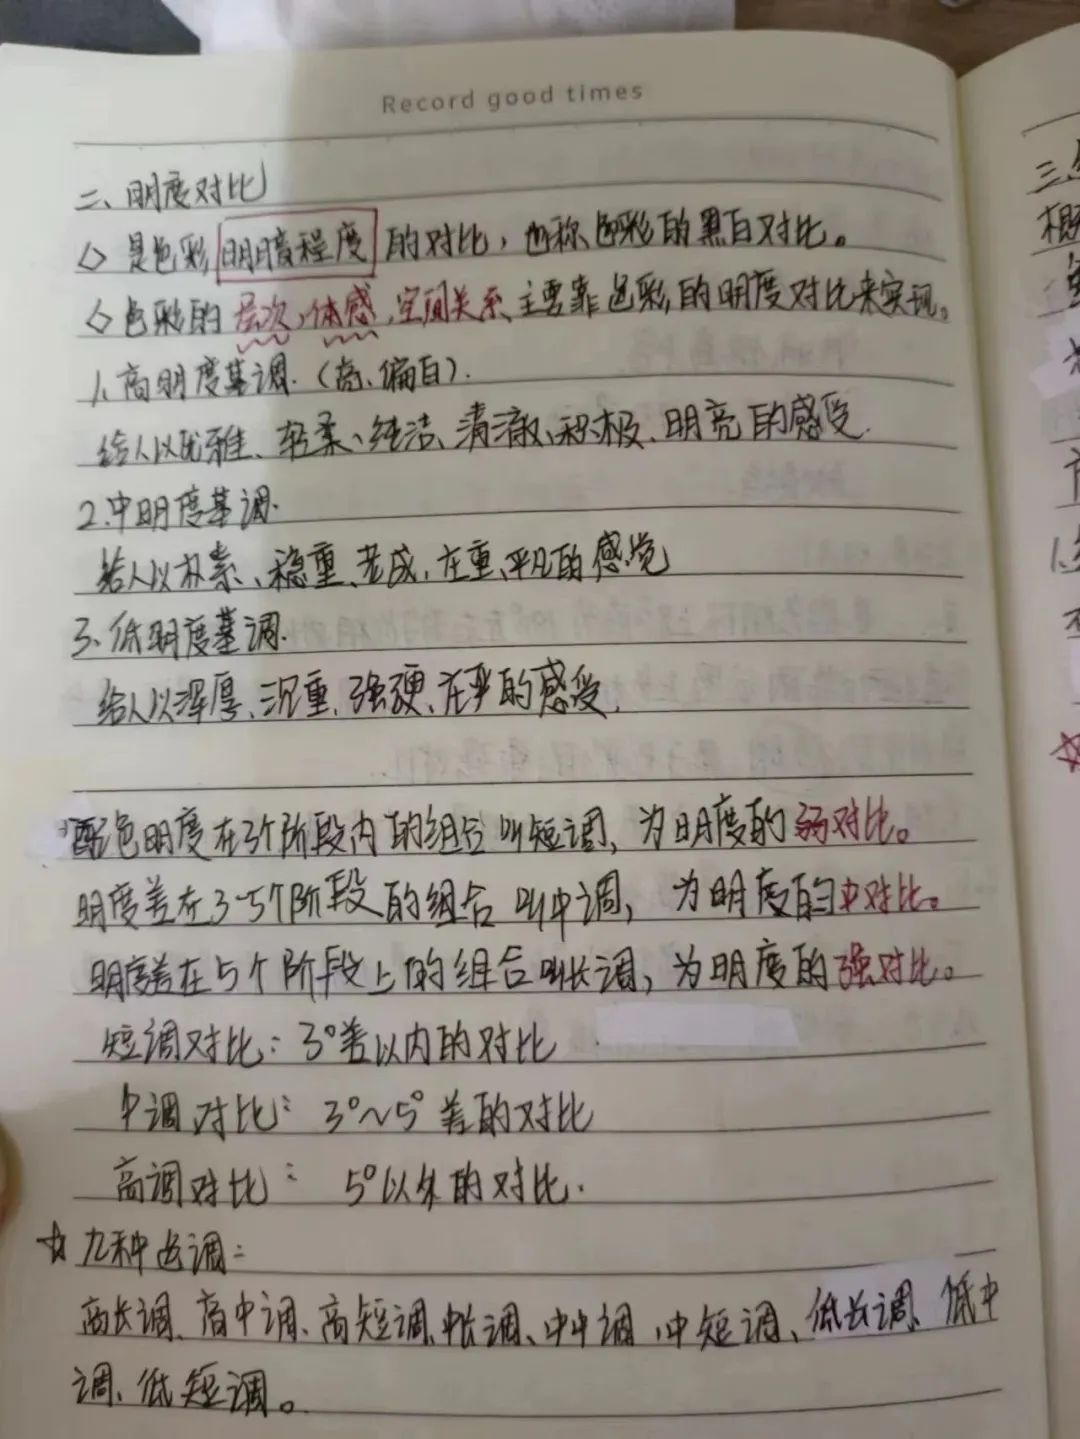 Record good times
二、明度对比
◇ 是色彩明暗程度的对比，也称色彩的黑白对比。
◇ 色彩的层次，体感，空间关系、主要靠色彩的明度对比来实现。
1、高明度基调．（亮、偏白）．
给人以优雅、轻柔、纯洁、清澈、积极、明亮的感受．
2．中明度基调．
给人以朴素、稳重、老成，庄重、平凡的感觉
3、低明度基调．
给人以浑厚、沉重、强硬、庄严的感受．
配色明度在3个阶段内的组合叫短调，为明度的弱对比。
明度差在3-5个阶段的组合叫中调，为明度的中对比。
明度差在5个阶段上的组合叫长调，为明度的强对比。
短调对比：3°差以内的对比
中调对比：3°~5°差的对比
高调对比：5°以外的对比．
☆九种色调：
高长调、高中调、高短调、中长调、中中调，中短调、低长调、低中
调、低短调。
三、
1、